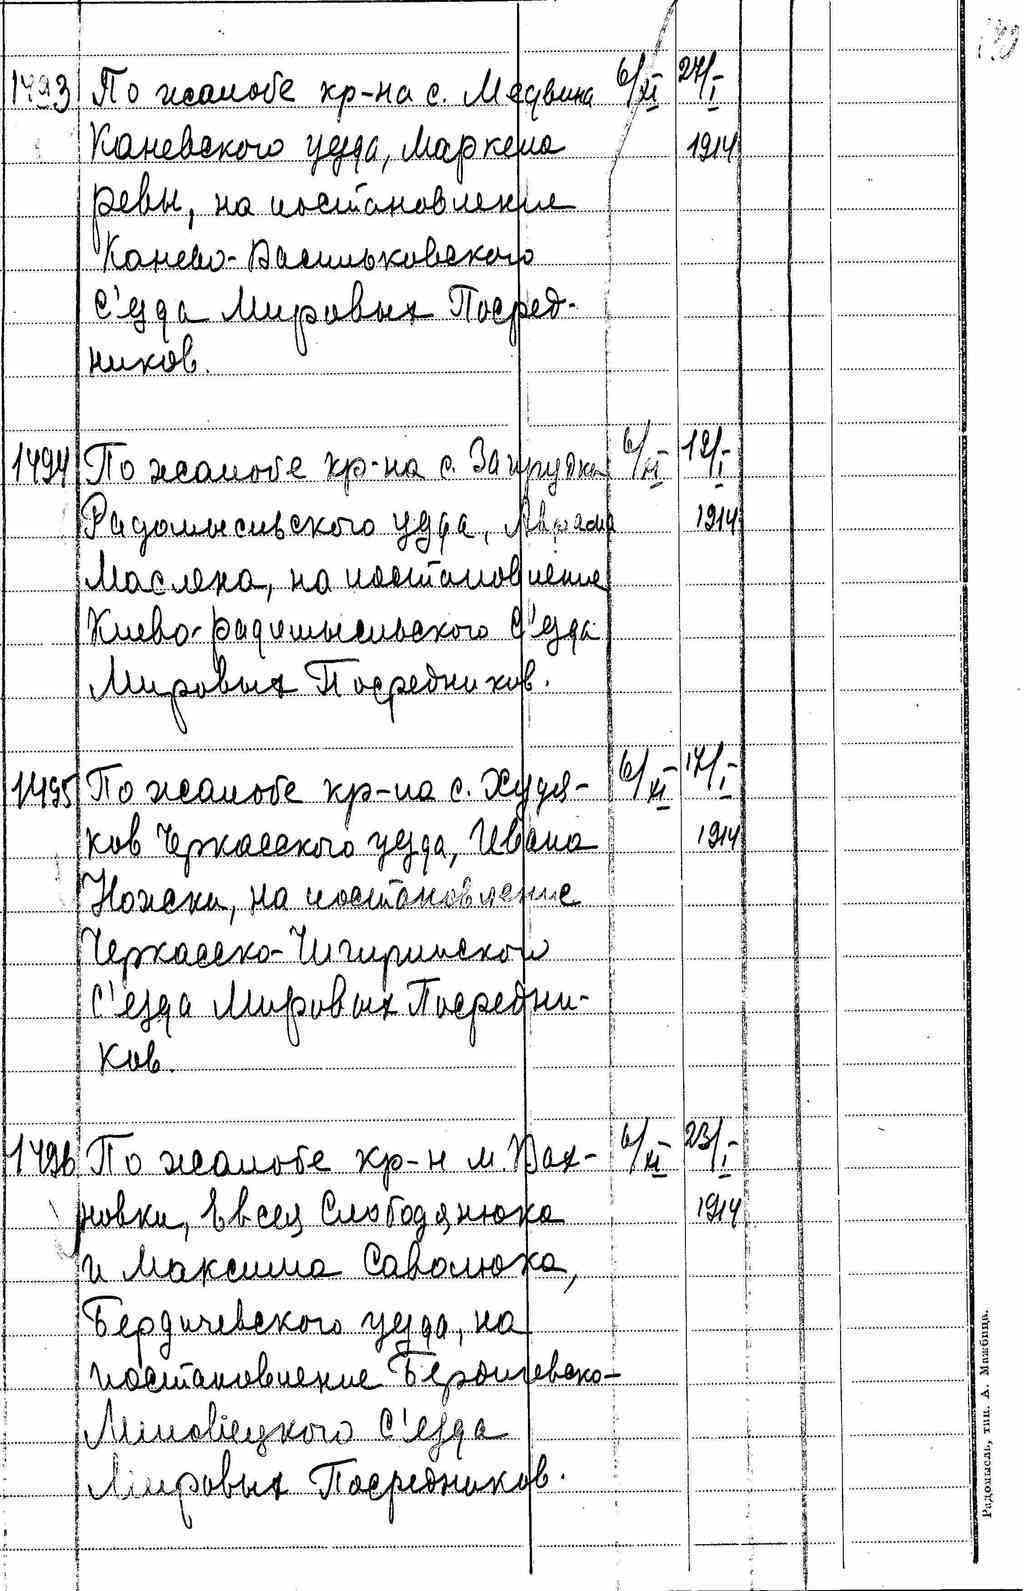 1493 По жалобе кр-на с. Медвина 6/XI 27/I
Каневского уезда, Маркела 1914
Ревы, на постановление
Канево-Васильковского
С'езда Мировых Посред-
ников.
1494 По жалобе кр-на с. 6/XI 12/I
Радомысльского уезда, 1914
Маслена, на постановление
Киево-Радомысльского С'езда
Мировых Посредников.
1495 По жалобе кр-на с. Худя- 6/XI 17/I
ков Черкасского уезда, Ивана 1914
Ножки, на постановление
Черкасско-Чигиринского
С'езда Мировых Посредни-
ков.
1496 По жалобе кр-н м. Вах- 6/XI 23/I
новки, Евсея Слободянюка 1914
и Максима Саволюка,
Бердичевского уезда, на
постановление Бердичевско-
Липовецкого С'езда
Мировых Посредников.
Радомысль, тип. А. Мажбица.